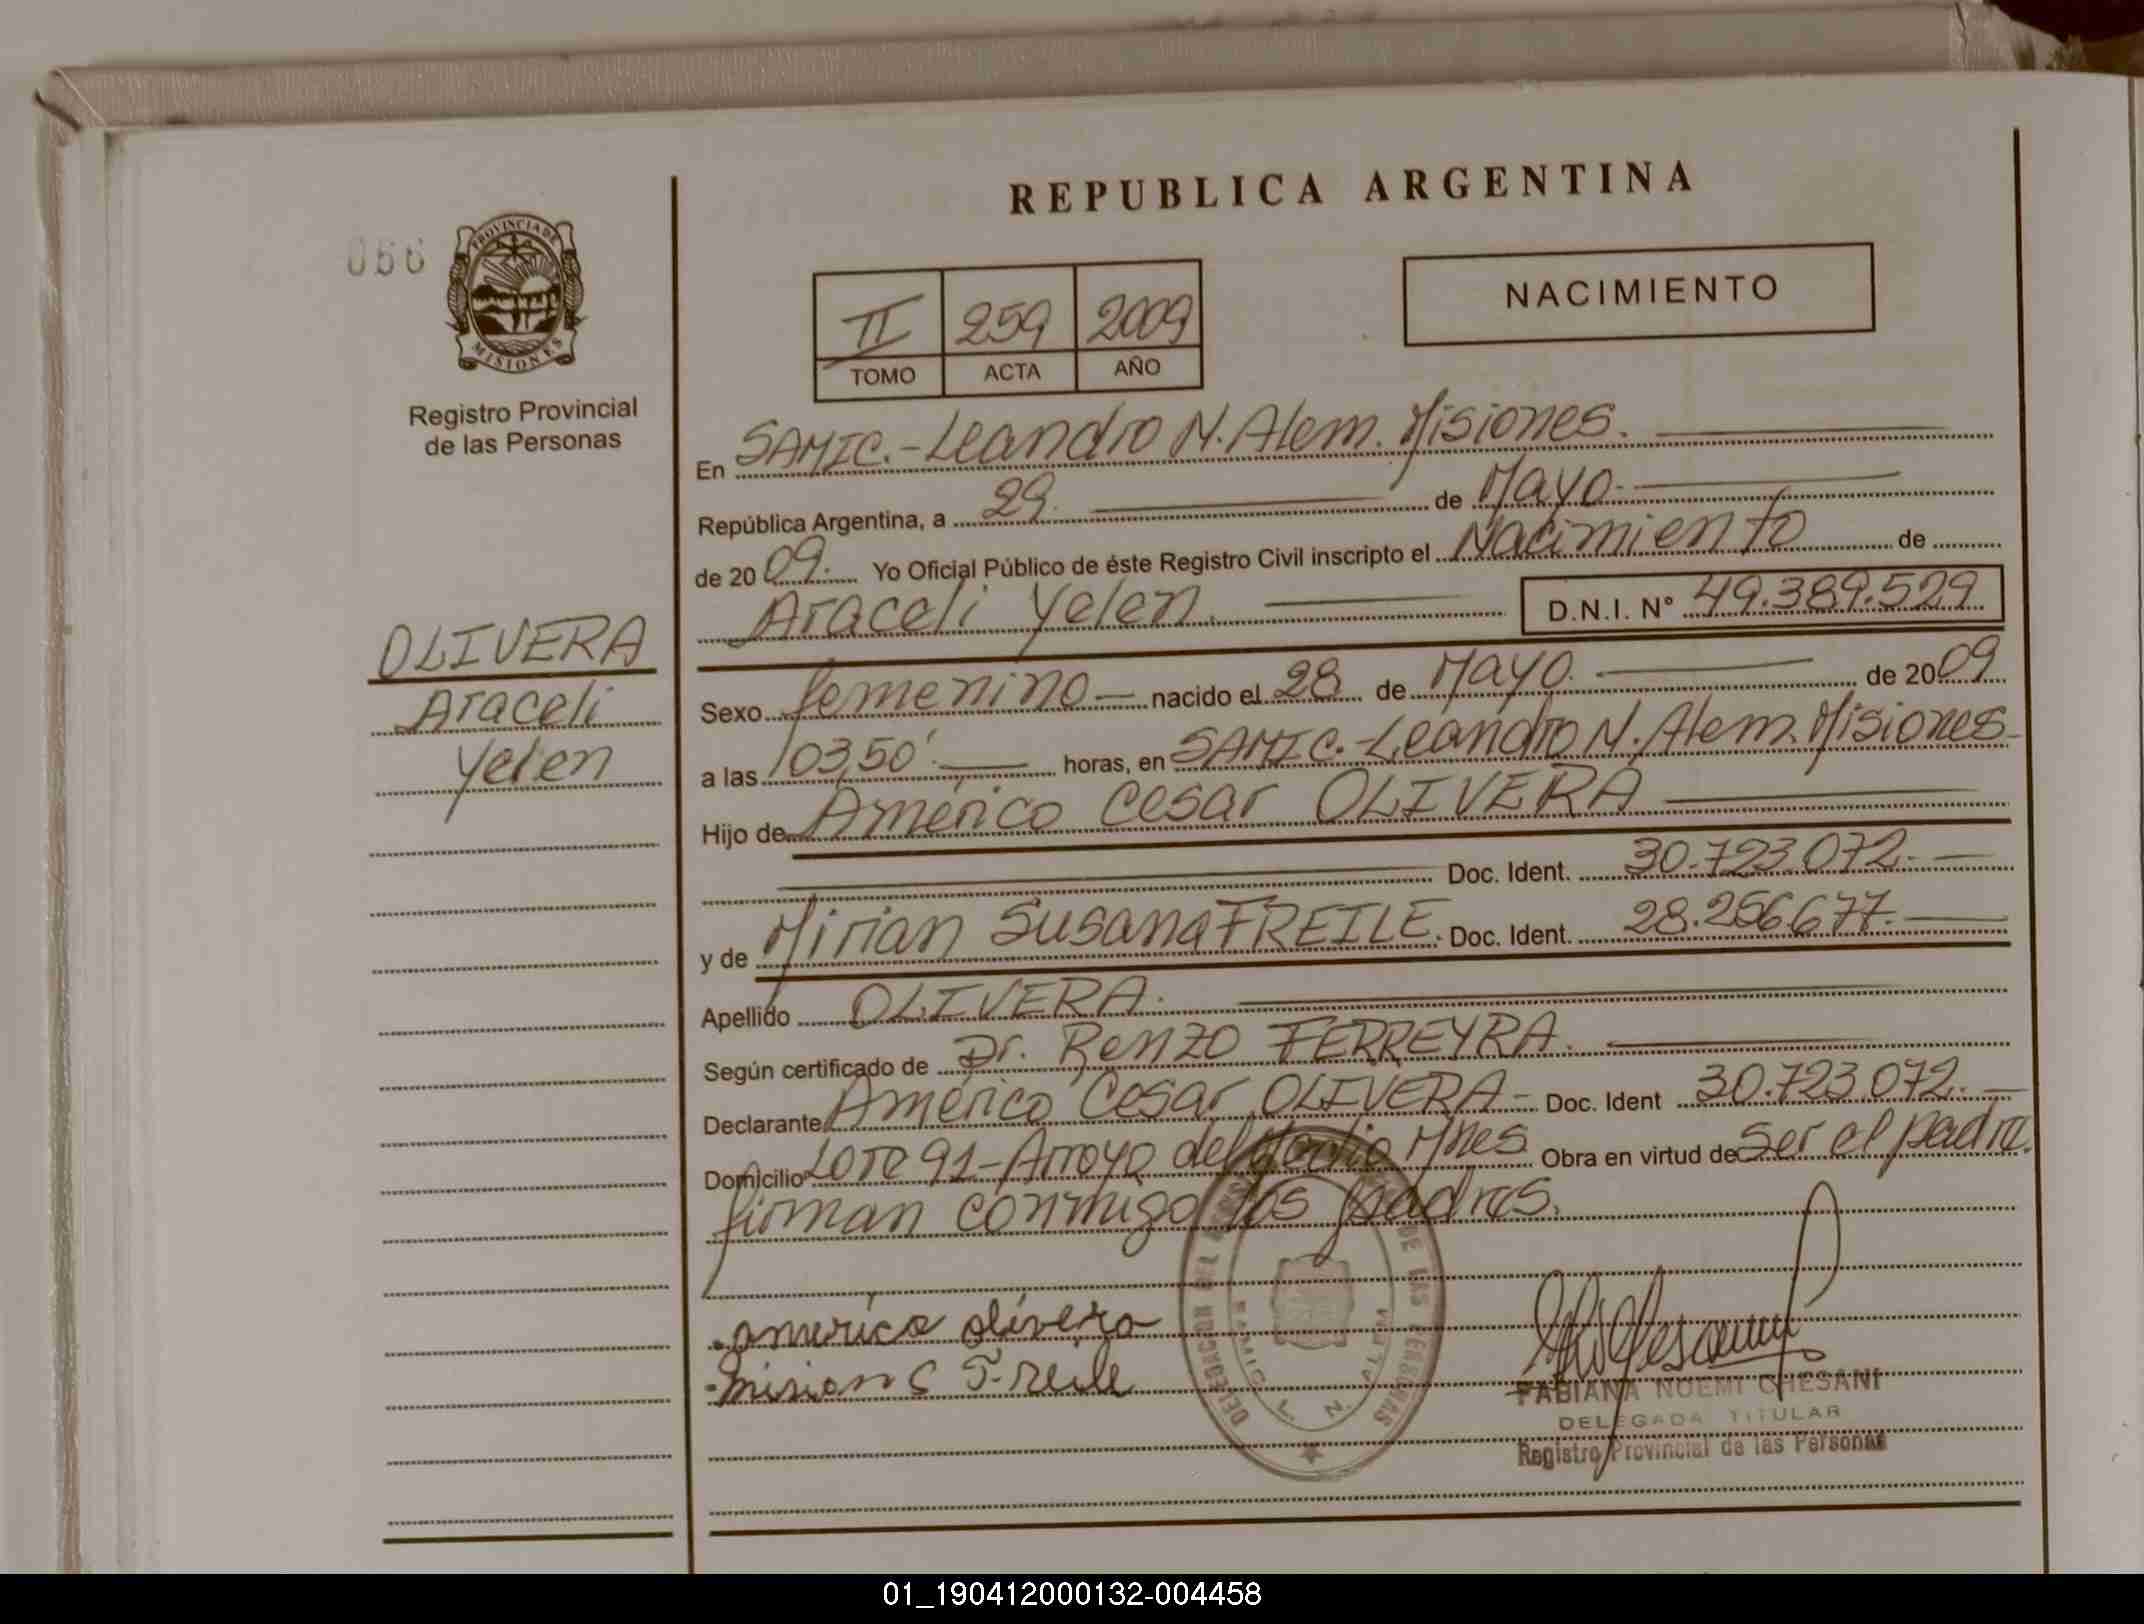 REPUBLICA ARGENTINA
066
PROVINCIA DE
MISIONES
Registro Provincial
de las Personas
OLIVERA
Araceli
Yelen
II 259 2009
TOMO ACTA AÑO
NACIMIENTO
En SAMIC.-Leandro N. Alem. Misiones.
República Argentina, a 29. de Mayo.
de 2009. Yo Oficial Público de éste Registro Civil inscripto el Nacimiento de
Araceli Yelen. D.N.I. Nº 49.389.529
Sexo femenino nacido el 28 de Mayo. de 2009
a las 03,50' horas, en SAMIC.-Leandro N. Alem. Misiones
Hijo de Américo Cesar OLIVERA
Doc. Ident. 30.723.072.
y de Mirian Susana FREILE. Doc. Ident. 28.256.677.
Apellido OLIVERA.
Según certificado de Dr. Renzo FERREYRA.
Declarante Américo Cesar OLIVERA- Doc. Ident 30.723.072.
Domicilio Lote 91-Arroyo del Medio Mnes Obra en virtud de ser el padre.
firman conmigo los padres.
america olivera
S Freile
DE LAS PERSONAS
SAMIC L. N. ALEM
FABIANA NOEMI CHESANI
DELEGADA TITULAR
Registro Provincial de las Personas
01_190412000132-004458